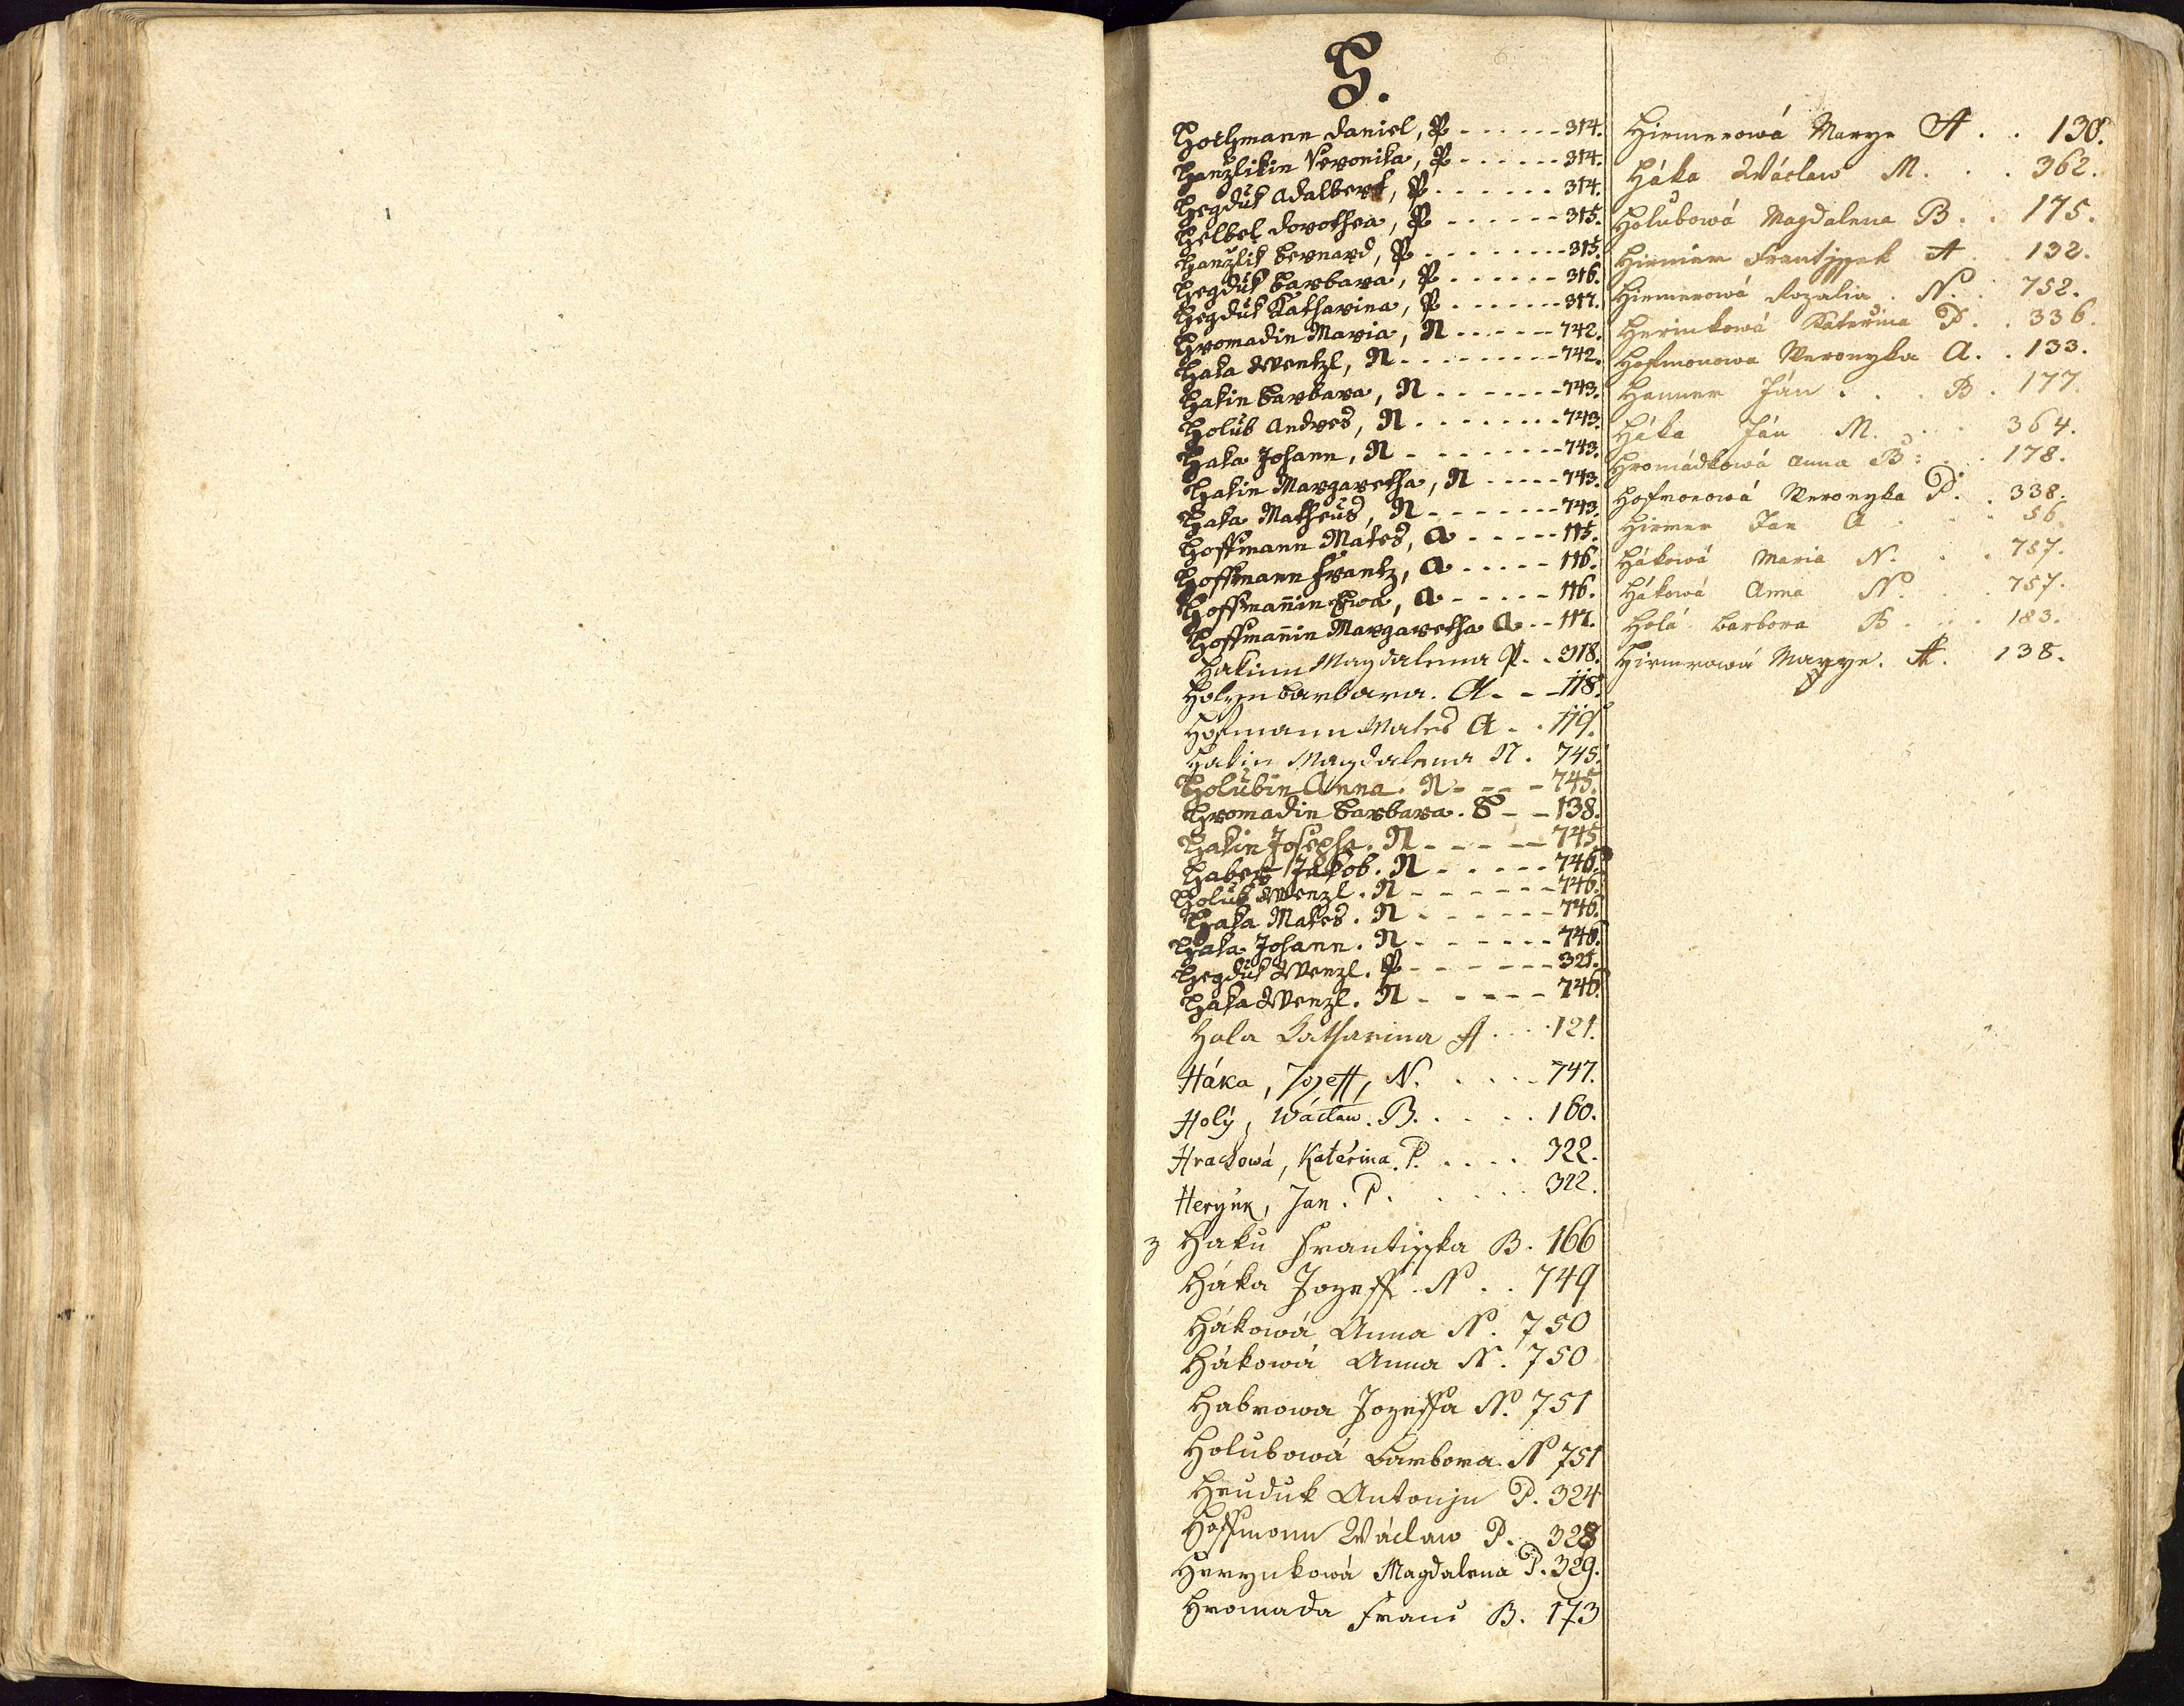 H.
Hochmann Daniel, P - - - - - - 314.
Hanzlikin Veronika, P - - - - - - 314.
Hegduk Adalbert, P - - - - - - 314.
Helbel Dorothea, P - - - - - - 315.
Hanzlik Bernard, P - - - - - - - - 315.
Hegduk Barbara, P - - - - - - 316.
Hegduk Katharina, P - - - - - - 317.
Hromadin Maria, N - - - - - - 742.
Haka Wentzl, N - - - - - - - - 742.
Hakin Barbara, N - - - - - - - 743.
Holub Andres, N - - - - - - - - 743.
Haka Johann, N - - - - - - - - 743.
Hakin Margaretha, N - - - - - 743.
Haka Matheus, N - - - - - - - 743.
Hoffmann Mates, A - - - - - 115.
Hoffmann Frantz, A - - - - - 116.
Hoffmannin Ewa, A - - - - - 116.
Hoffmannin Margaretha A - - 117.
Hakinn Magdalena P. - 318.
Holyn Barbara. A - - - 118.
Hofmann Mates A. - 119.
Hakin Magdalena N. 745.
Holubin Anna. N - - - - 745.
Hromadin Barbara. S - - 138.
Hakin Josepha. N - - - - - 745.
Haber Jakob. N - - - - - 746.
Holub Wenzl. N - - - - - - - 746.
Haka Mates. N - - - - - - 746.
Haka Johann. N - - - - - - 746.
Hegduk Wenzl. P - - - - - - - 321.
Haka Wenzl. N - - - - - 746.
Hola Katharina A . . . . 121.
Háka, Jozeff, N. . . . . 747.
Holý, Wáclaw. B. . . . . 160.
Hrachowá, Kateřina. P. . . . . 322.
Herynk, Jan. P. . . . . . 322.
z Haku Frantisska B. 166
Háka Jozeff. N . . 749
Hákowá Anna N. 750
Hákowá Anna N. 750
Habrowa Jozeffa N. 751
Holubowá Barbora. N 751
Heuduk Antonjn P. 324
Hoffmann Wáclaw P. . 328
Herynkowá Magdalena P. 329.
Hromada Franc B. 173
Hirmerowá Marye A . . 130.
Háka Wáclaw M. . . 362.
Holubowá Magdalena B. . 175.
Hirmer Frantjssek A . 132.
Hirmerowá Rozalia. N. . 752.
Herinkowá Kateřina P. . 336.
Hofmonowa Weronyka A. . 133.
Hanner Ján . . . B . 177.
Háka Ján M. . . 364.
Hromádkowá Anna B: . . 178.
Hofmonowá Weronyka P. . 338.
Hirmer Jan A . . . 56.
Hákowá Maria N. . . 757.
Hákowá Anna N. . . 757.
Holá Barbora B . . . 183.
Hirmerowá Marye. A. 138.